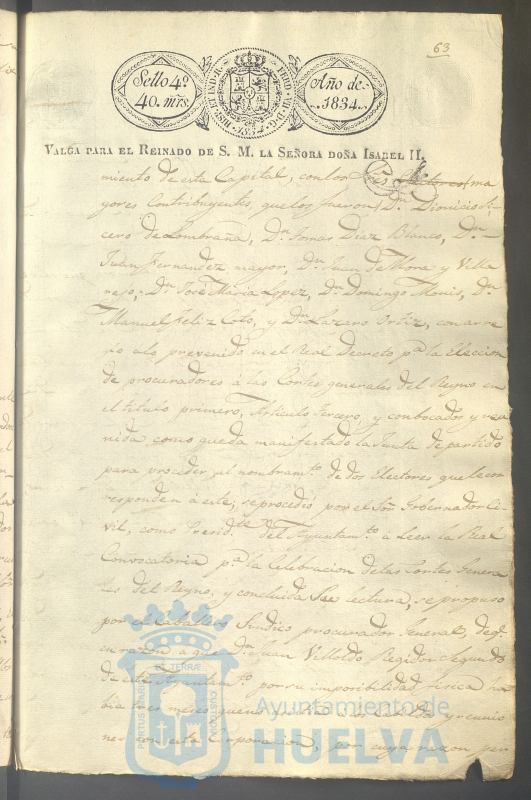 63
Sello 4º
40. mrs.
HISP. ET IND. R. FERD. VII. D. G. 1834
Año de
1834.
VALGA PARA EL REINADO DE S. M. LA SEÑORA DOÑA ISABEL II.
miento de esta Capital, con los ma
yores Contribuyentes, que los fueron, Dn. Dionicio
cero de Lombraña, Dn. Tomas Diaz Blanco, Dn.
Juan Fernandez mayor, Dn. Juan de Mora y Villa
rejo, Dn. José Maria Lopez, Dn. Domingo Dn.
Manuel Feliz Coto, y Dn. Lazaro Ortiz, con arre
glo a lo prevenido en el Real Decreto pa. la Eleccion
de procuradores á las Cortes generales del Reyno en
el titulo primero, Articulo tercero, y conbocado y reu
nida como queda manifestado la Junta de partido
para proceder al nombramto. de dos Electores que le cor
responden á este, se procedió por el Sor. Gobernador Ci
vil, como Presidte. del Ayuntamto. á leer la Real
Convocatoria pa. la Celebracion de las Cortes Genera
les del Reyno, y concluida su lectura, se propuso
por el Caballero Sindico procurador General, de qe.
en razon a que Dn. Juan Velloldo Regidor Segundo
de este Ayuntamto. por su imposibilidad fisica ha
bia tres meses que no y reunio
nes con esta Corporacion, por cuya razon per
PORTUS MARIS ET TERRÆ CUSTODIA
Ayuntamiento de
HUELVA